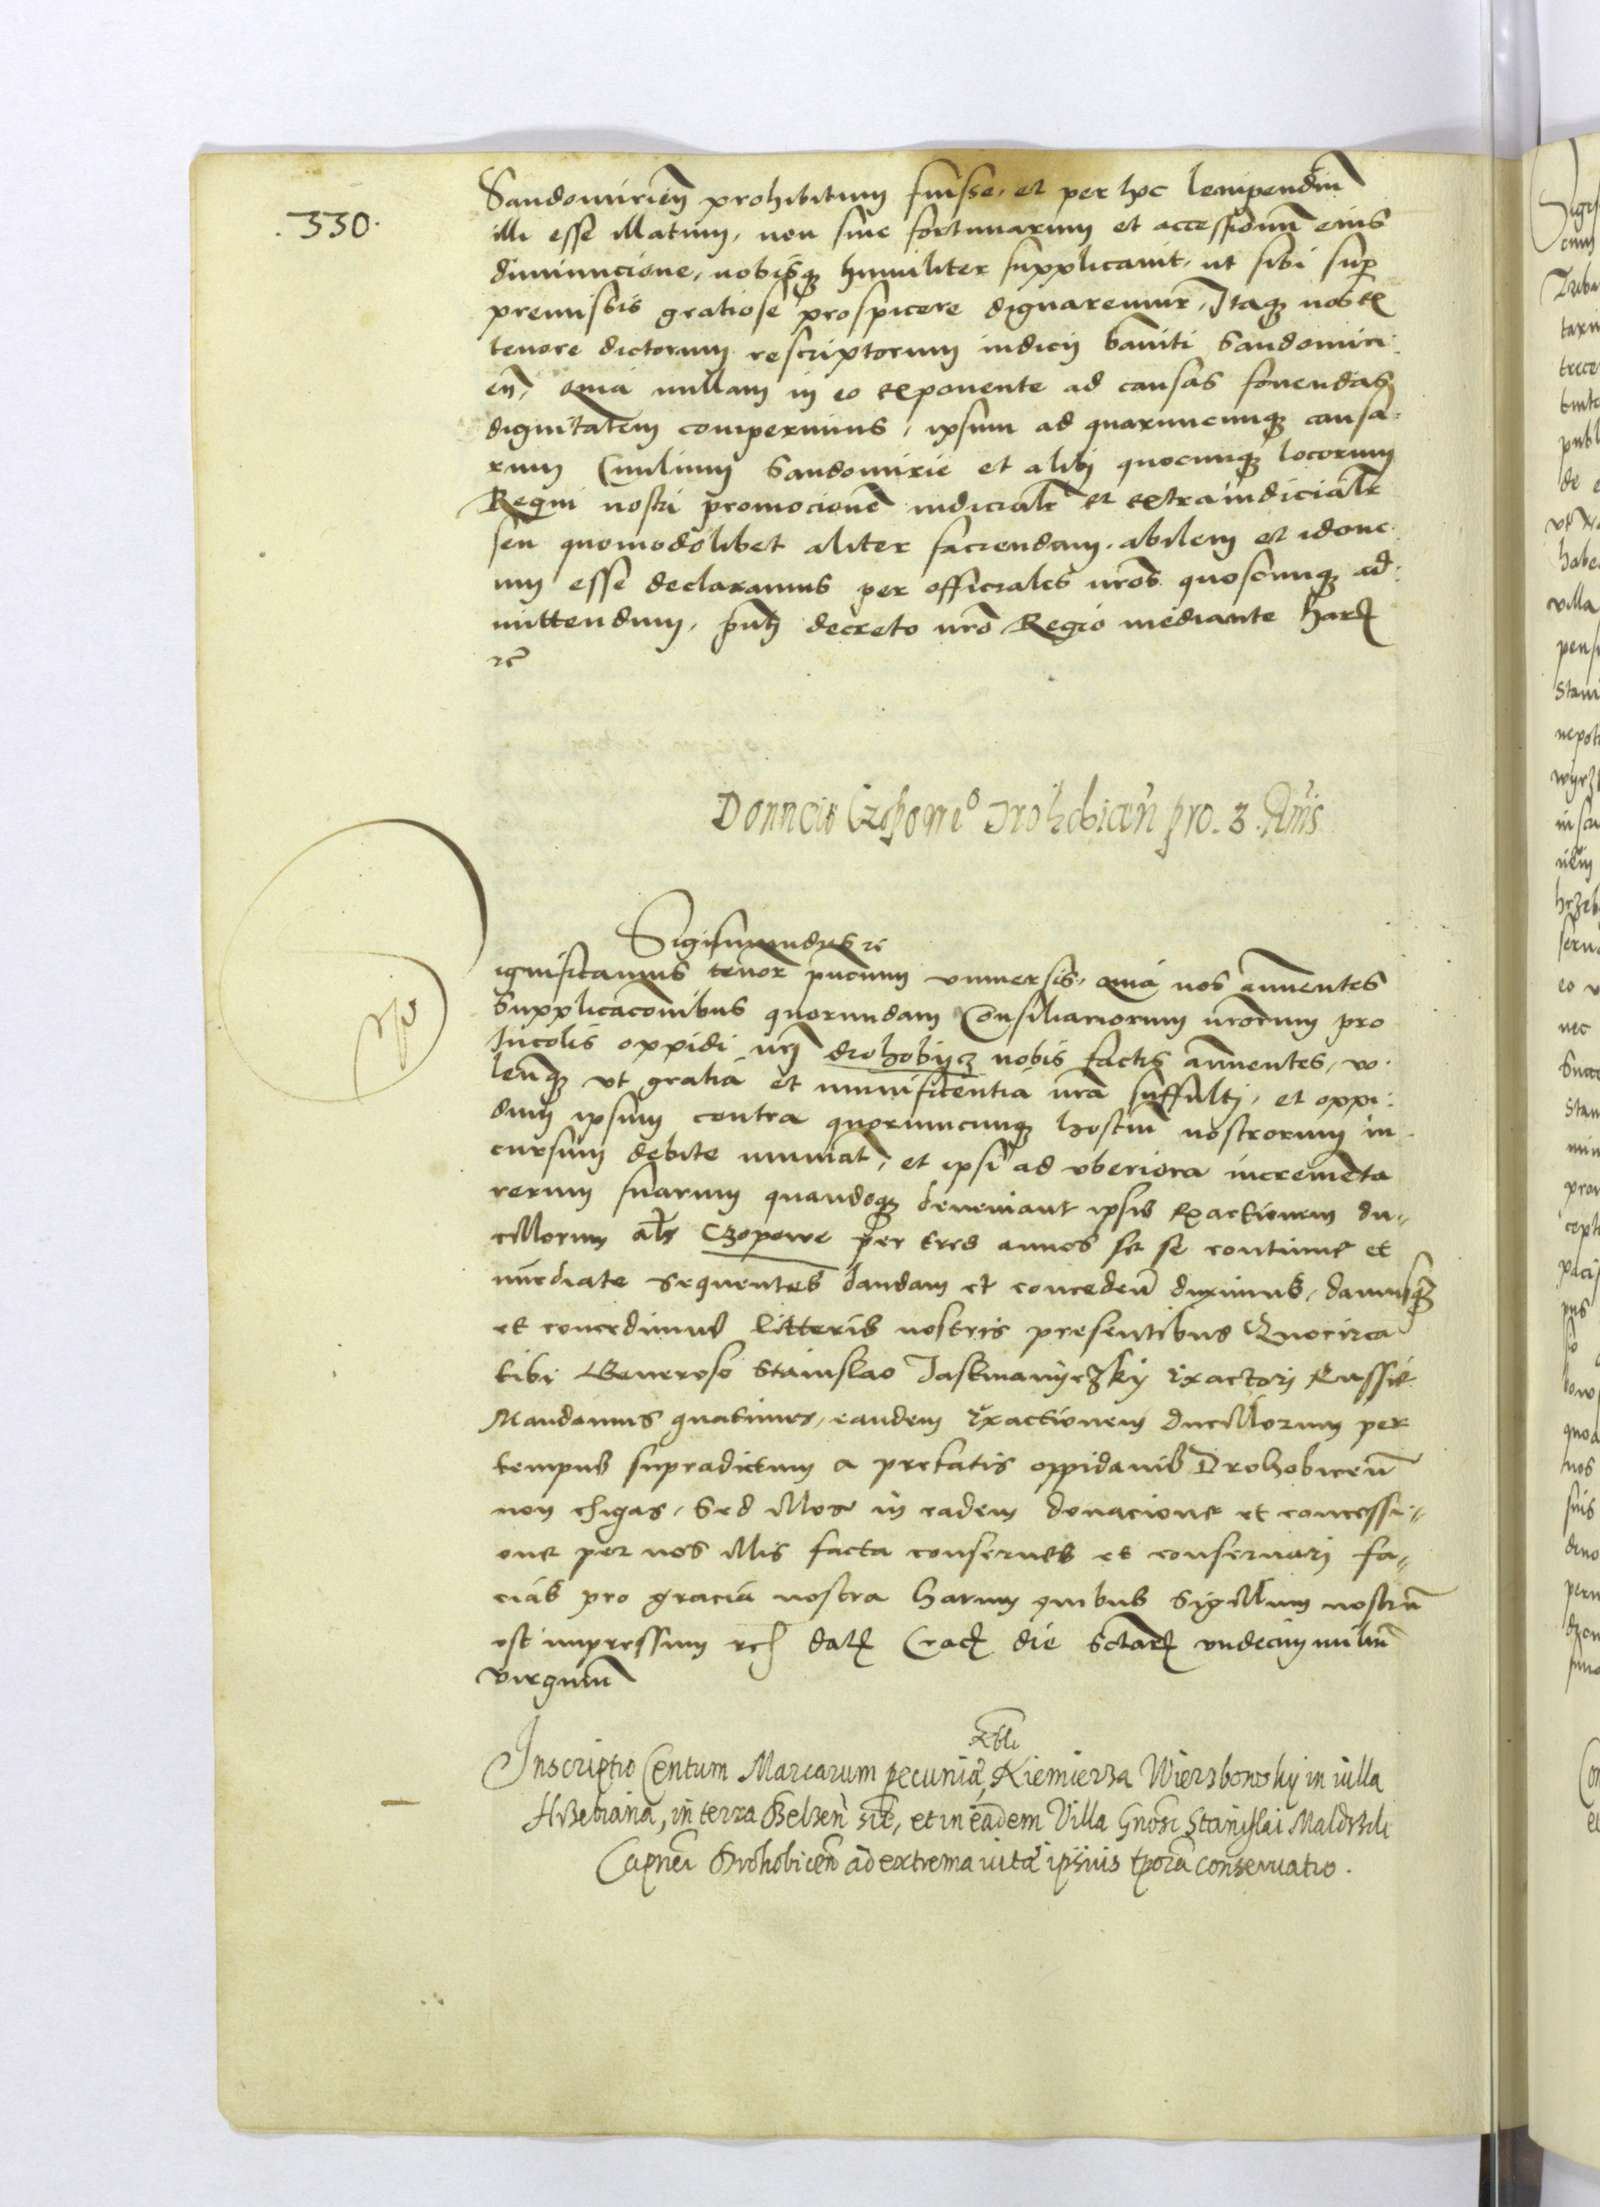 .330.
Sandomirien̄ prohibitum fuisse, et per hoc lenipendiū
illi esse illatum, non sine fortunarum et accessionū eius
diminucione, nobisq3 humiliter supplicavit, ut sibi sup
premissis gratiose prospicere dignaremur, Itaq3 nos ex
tenore dictorum rescriptorum iudicij baniti Sandomiri:
en̄, quia nullam in eo exponente ad causas fovendas
dignitatem comperimus, ipsum ad quarumcunq3 causa:
rum Civilium Sandomirie et alibi quocunq3 locorum
Regni nostri promocionē iudicialr̄ et extraiudicialr̄
seu quomodolibet aliter faciendam, abilem et idone
um esse declaramus per officiales nr̄os quoscunq3 ad:
mittendum, pn̄ti decreto nr̄o Regio mediante har
rc̄
Donncio Czopowe° Drohobicen̄ pro. 3. Anis
Sigismundus rc
ignificamus tenor̄ pn̄cium vniversis, quia nos annuentes
Supplicacōnibus quorundam Consiliariorum nr̄orum pro
Incolis oppidi nr̄j drohobijcz nobis factis annuentes, vo
lentq3 vt gratiā et munificentiā nr̄a suffultj, et oppi:
dum ipsum contra quorumcunq3 hostiū nostrorum in
cursum debite muniat, et ipsi ad vberiora incremēta
rerum suarum quandoq3 deveniant ipsis Exactionem du„
cillorum als Czopowe per tres annos se se continue et
immediate sequentes dandam et concedendā duximus, damusq3
et concedimus litteris nostris presentibus Quocirca
tibi Generoso Stanislao Jaskmanijczkij Exactorj Russie
Mandamus quatinus, eandem Exactionem ducillorum per
tempus supradictum a prefatis oppidanis Drohobicen̄
non exigas, Sed illos in eadem donacione et concessi„
one per nos illis facta conserves et conservarj fa„
cias pro gracia nostra harum quibus Sigillum nostrū
est impressum rc dat Crac die sctar undecim miliū
virginum
Inscriptio Centum Marcarum pecuniæ Nbli Kiemierza Wierzbowsky in villa
Hrzebiana, in terra Belzen̄ sit, et in eadem Villa Gn̄osi Stanislai Maldrzik
Capnei Drohobicen̄ ad extrema vitæ ipsius tp̄ora conservatio.